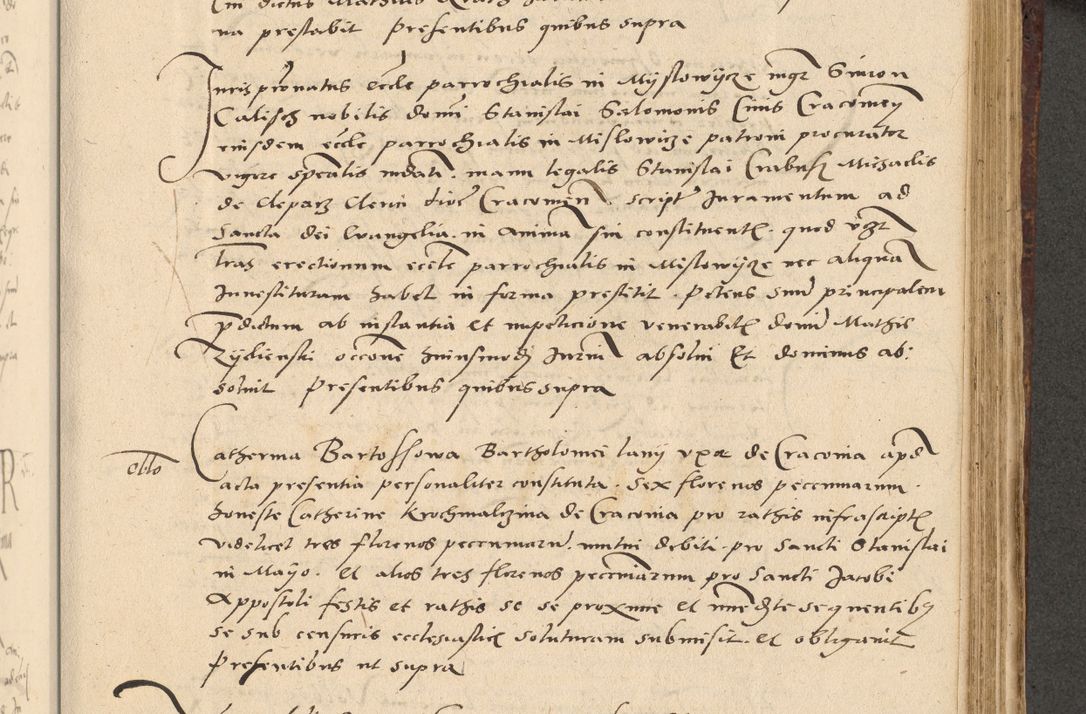 na prestabit Presentibus quibus supra
Juris pr̄onatus eccle̅ parrochialis in Myslowycze mgr̄ Simon
Calisch nobilis domi̅ Stanislai Salomonis Civis Cracovien̅
eiusdem eccle̅ parrochialis in Mislowicze patroni procurator
vigore spe̅alis mdati. manu legalis Stanislai Crabusz Michaelis
de Cleparz Clerici dioc̅ Cracovien̅. script̅ Juramentum ad
Sancta dei Evangelia. in anima̅ sui constituent̅. quod
l̅ras erectionum eccle̅ parrochialis in Mislowycze nec aliqua̅
Investituram habet in forma prestitit. Petens suu̅ principalem
p̅dictum ab instantia et impeticione venerabil̅ domi̅ Mathie
occ̅one huiusmodi Jurn̅ absolvi Et dominus ab:
solvit Presentibus quibus supra
Catherina Bartossowa Bartholomei lanij vxor de Cracovia apd̅
acta presentia personaliter constituta. Sex florenos peccuniarum.
honeste Catherine Krochmalczina de Cracovia pro rathis infrascript̅
videlicet tres florenos peccuniaru̅. mutui debiti. pro Sancti Stanislai
in Mayo. Et alios tres florenos peccuniarum pro Sancti Jacobi
Appostoli festis et rathis se se proxime et imme̅diate sequentibus
se sub censuris ecclesiastic̅ soluturam submisit. et obligavit
Presentibus ut supra